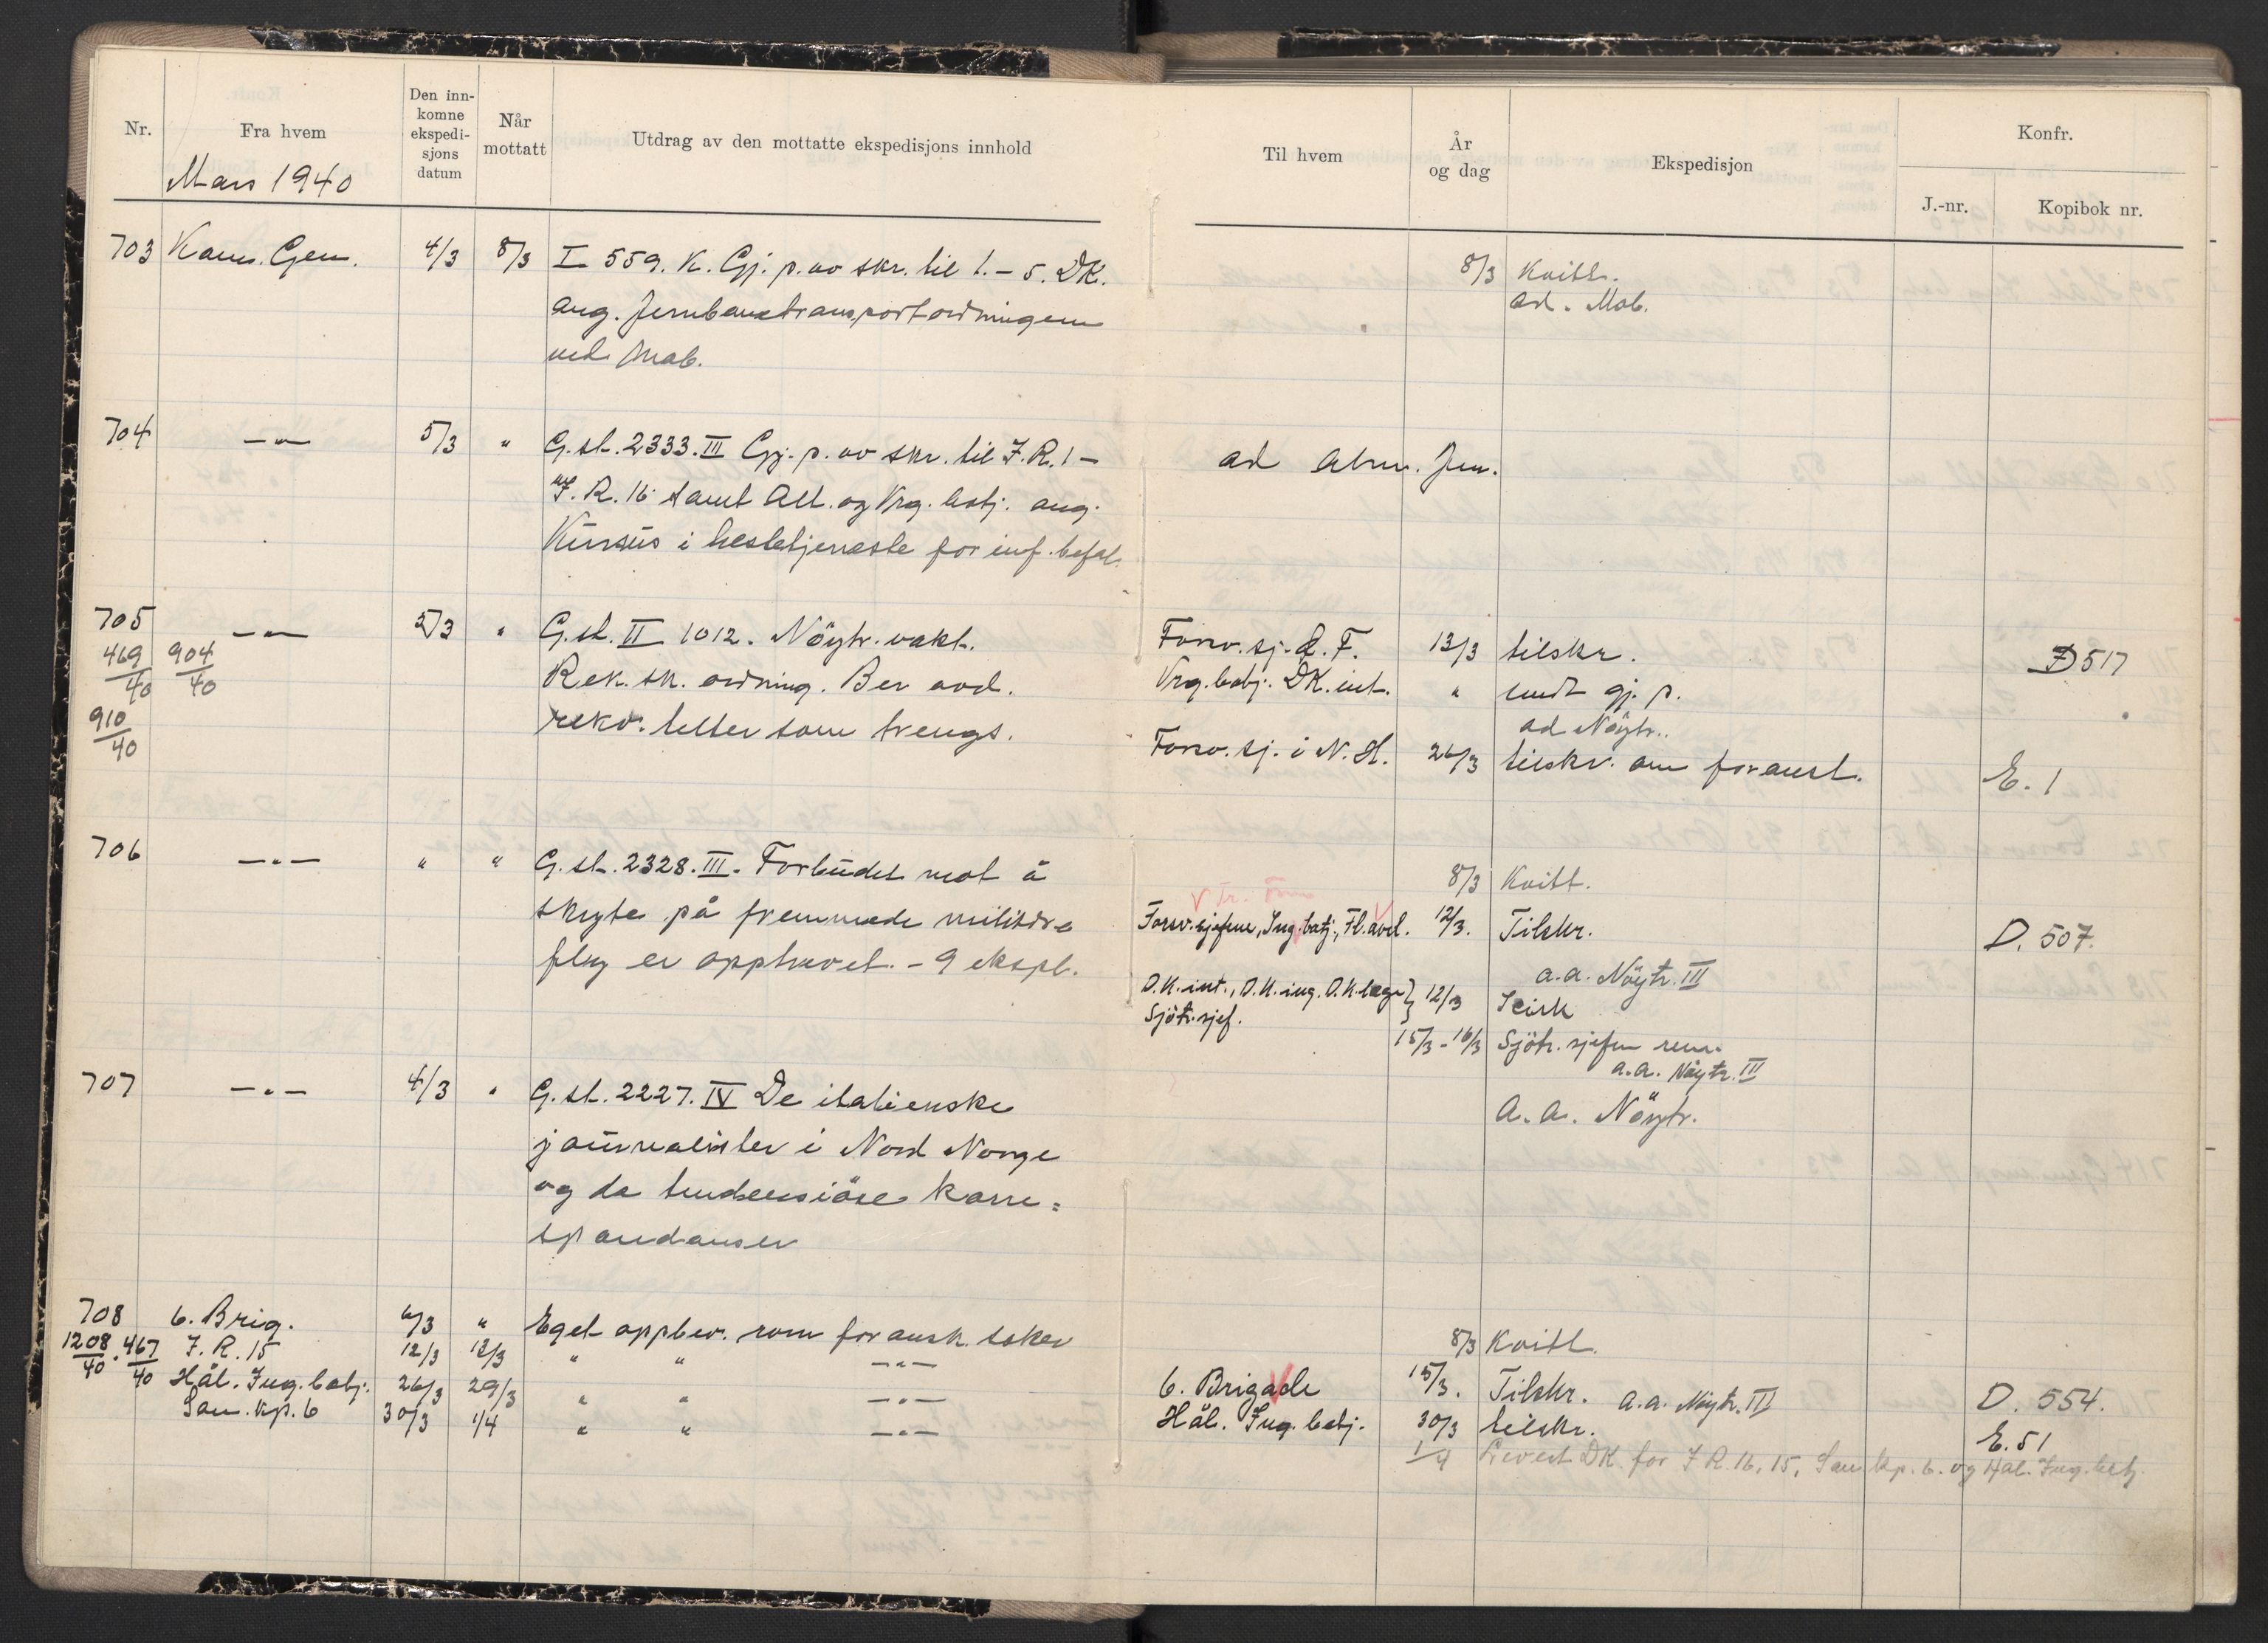 Nr. Fra hvem Den inn-komne ekspedi-sjons datum Når mottatt Utdrag av den mottatte ekspedisjons innhold
Mars 1940
703 Kom. Gen. 4/3 8/3 I 559. K. Gj. p. av skr. til 1. - 5. DK.
ang. Jernbanetransportordningen
ved Mob.
704 —"— 5/3 " G.st. 2333. III Gj. p. av skr. til I.R. 1 -
I.R. 16 samt Alt. og Vrg. batj. ang.
Kursus i hestetjeneste for inf. befal.
705 —"— 5/3 " G.st. II 1012. Nöytr. vakt.
469/40 904/40 Rek. sk. ordning. Ber avd.
910/40 rekv. hester som trengs.
706 —"— " " G.st. 2328. III. Forbudet mot å
skyte på fremmede militære
fly er opphevet. - 9 ekspl.
707 —"— 4/3 " G.st. 2227. IV De italienske
journalister i Nord Norge
og de tendensiöse korre=
spondanser
708 6. Brig. 6/3 " Eget oppbev. rom for ansk. saker
1208/40 . 467/40 I.R. 15 12/3 13/3 " " —"—
Hål. Ing. batj. 26/3 29/3 " " —"—
San. kp. 6 30/3 1/4 " " —"—
Til hvem År og dag Ekspedisjon Konfr.
J.-nr. Kopibok nr.
8/3 Kvitt.
ad. Mob.
ad Alm. Jnr.
Forsv. sj. Ö. F. 13/3 tilskr. D 517
Vrg. batj. DK. int. " sendt gj. p.
ad Nöytr.
Forsv. sj. i N. H. 26/3 tilskr. om foranst. E. 1
8/3 Kvitt.
Forsv. sjefene, Ing. batj., Fl. avd. 12/3. Tilskr. D. 507.
a.a. Nöytr. III
D.K. int., D.K. ing. D.K. lege } 12/3
Sjötr. sjef.
15/3 - 16/3 Sjötr. sjefen
a.a. Nöytr. III
a. a. Nöytr.
8/3 Kvitt.
6. Brigade 15/3. Tilskr. a.a. Nöytr. III D. 554.
Hål. Ing. batj. 30/3 tilskr. E. 51
1/4 Levert DK. for I.R. 16, 15, San. kp. 6. og Hål. Ing. batj.